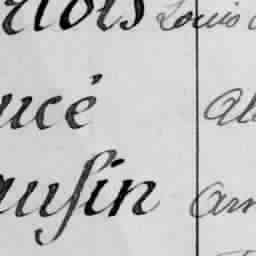 rtois Louis
ucé Al
ausin Arn